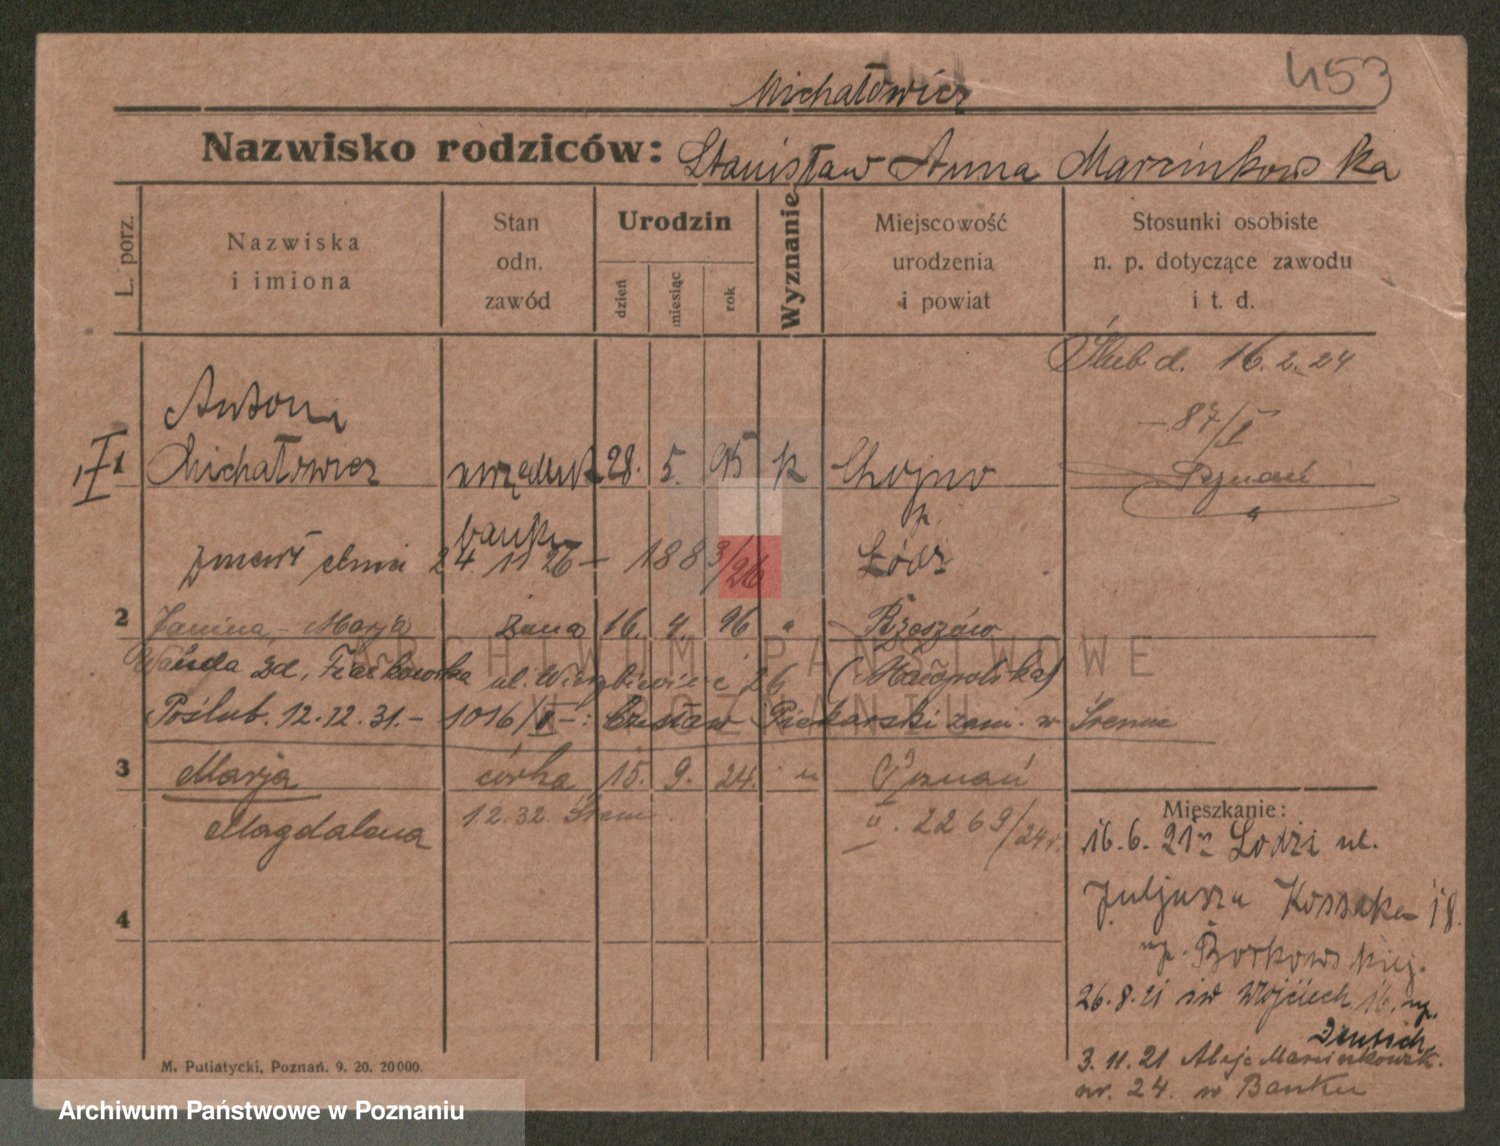 453
Michałowicz
Nazwisko rodziców: Stanisław Anna Marcinkowska
L. porz.
Nazwiska i imiona
Stan odn. zawód
Urodzin
dzień
miesiąc
rok
Wyznanie
Miejscowość urodzenia i powiat
Stosunki osobiste n. p. dotyczące zawodu i t. d.
Ślub d. 16.2.24
Antoni
- 87/I
1 Michałowicz urzędnik 28. 5. 95 k Chojno
Poznań
banku p.
zmarł dnia 24.11 26 - 1883/26 Łódź
2 Janina - Marja żona 16. 4. 96 " Rzeszów
Wanda zd. ul. 26 (Małopolska)
Poślub. 12.12.31.- 1016/II -: Czesław Piekarski zam. w Śremie
3 Marja córka 15. 9. 24. " Poznań
Magdalena 1.2.32. Śrem. II. 2269/24r.
Mieszkanie:
16.6.21 z Łodzi ul.
Juljusza Kossaka 18.
up. Borkowskiej.
4
26.8.21 św Wojciech 16, up.
Deutsch
3.11.21 Aleje Marcinkowsk.
nr. 24. w Banku
M. Putiatycki, Poznań. 9. 20. 20000.
ARCHIWUM PAŃSTWOWE
W POZNANIU
Archiwum Państwowe w Poznaniu